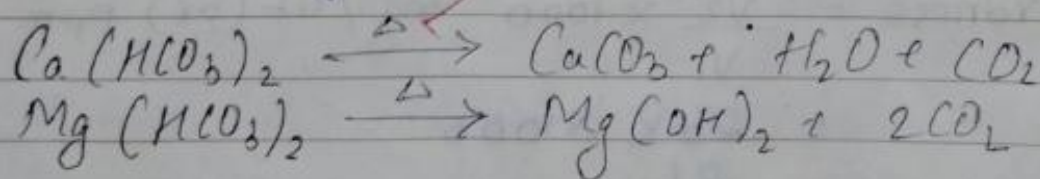 Ca(HCO3)2 —Δ→ CaCO3 + H2O + CO2
Mg(HCO3)2 —Δ→ Mg(OH)2 + 2CO2